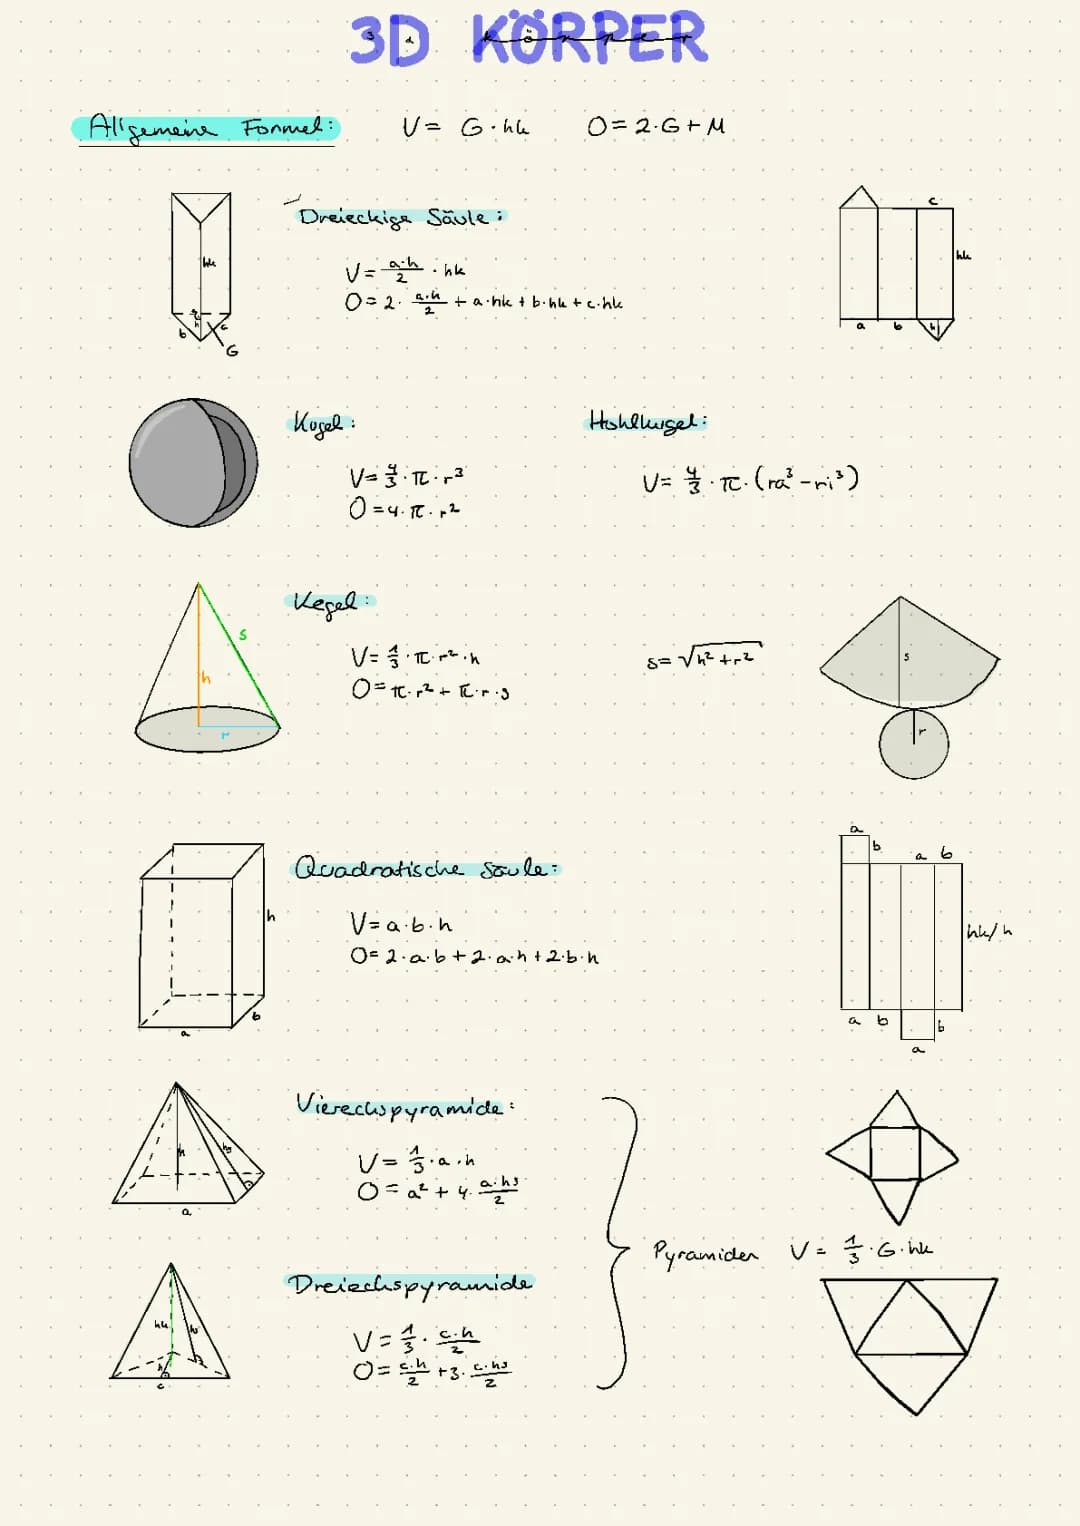 3D KÖRPER
3 d Körper
Allgemeine Formel: V = G · hk O = 2·G + M
Dreieckige Säule:
V = a·h/2 · hk
O = 2 · a·h/2 + a·hk + b·hk + c·hk
hk
b
c
h
G
c
hk
a b h
Kugel: Hohlkugel:
V = 4/3 · π · r³
O = 4 · π · r²
V = 4/3 · π · (ra³ - ri³)
Kegel:
V = 1/3 · π · r² · h
O = π · r² + π · r · s
s = √h² + r²
s
h
r
s
r
Quadratische Säule:
V = a · b · h
O = 2·a·b + 2·a·h + 2·b·h
h
b
a
a
b
a b
hk/h
a b
b
a
Vierecks­pyramide:
V = 1/3 · a · h
O = a² + 4 · a·hs/2
h
hs
a
Pyramiden V = 1/3 · G · hk
Dreieckspyramide
V = 1/3 · c·h/2
O = c·h/2 + 3 · c·hs/2
hk
hs
h
c